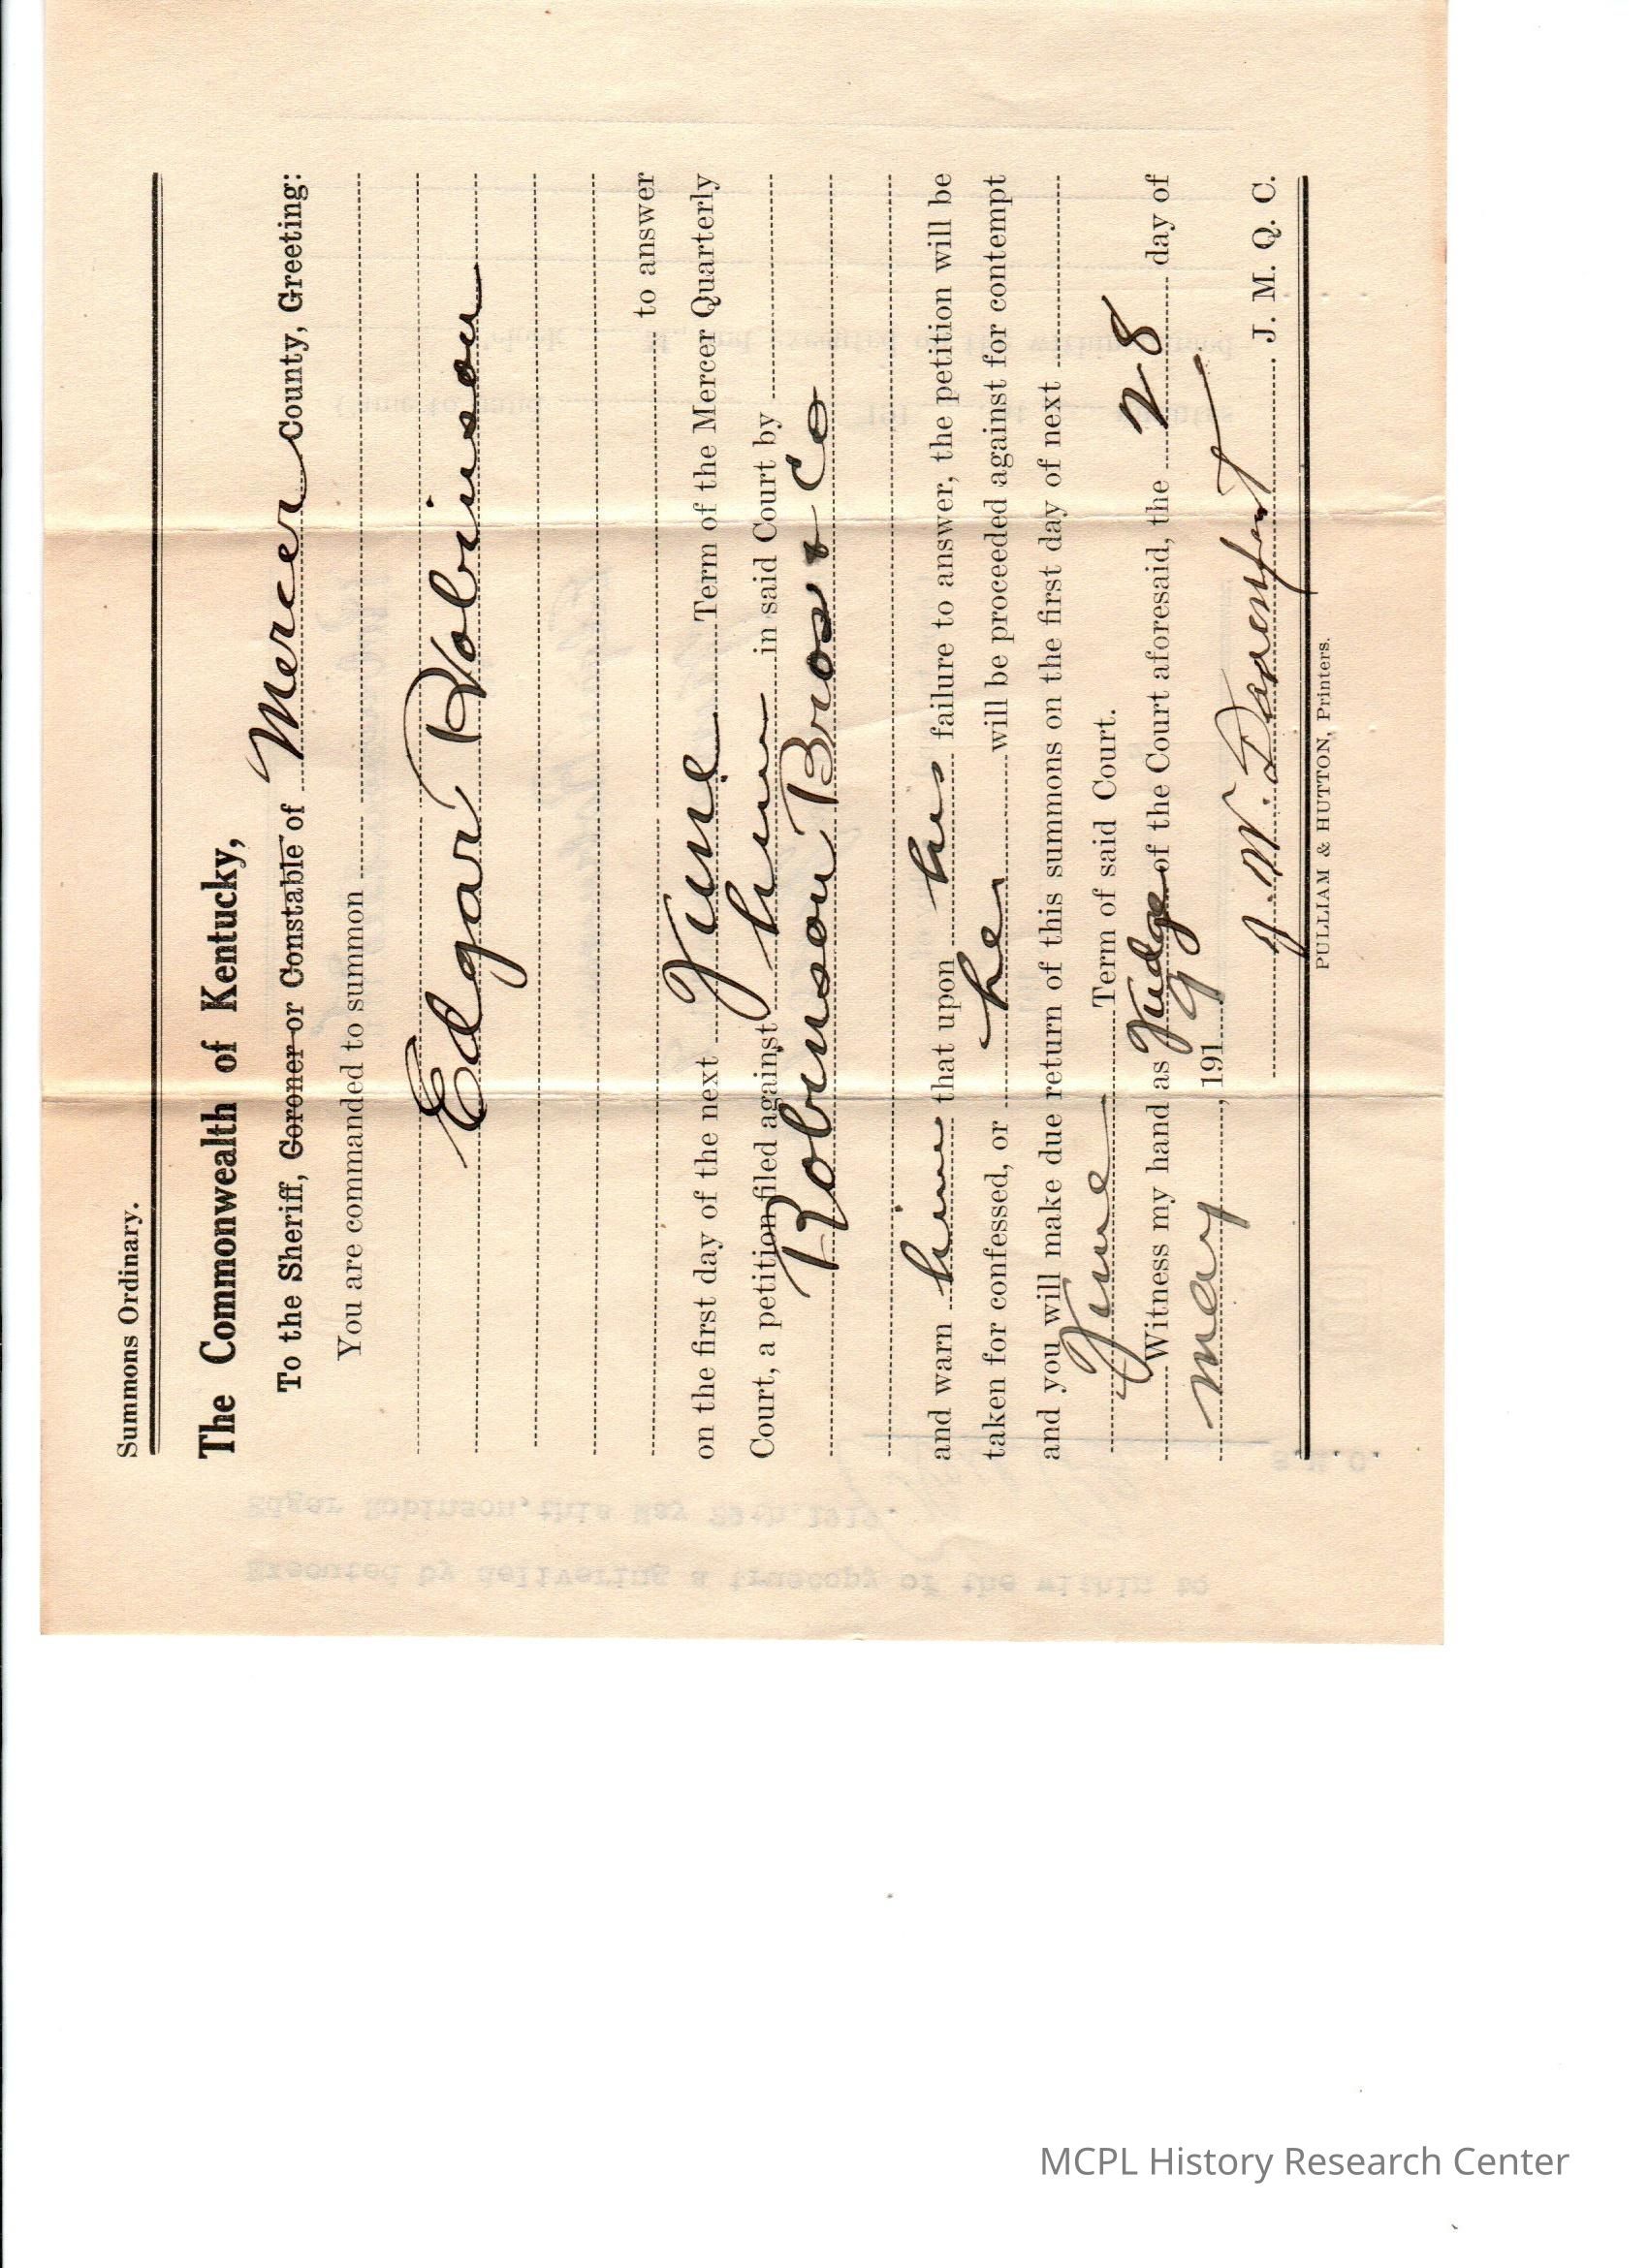 Summons Ordinary.
The Commonwealth of Kentucky,
To the Sheriff, Coroner or Constable of Mercer County, Greeting:
You are commanded to summon
Edgar Robinson
to answer
on the first day of the next June Term of the Mercer Quarterly
Court, a petition filed against him in said Court by
Robinson Bros & Co
and warn him that upon his failure to answer, the petition will be
taken for confessed, or he will be proceeded against for contempt
and you will make due return of this summons on the first day of next
June Term of said Court.
Witness my hand as Judge of the Court aforesaid, the 28 day of
May, 1919
J. M. Q. C.
PULLIAM & HUTTON, Printers.
Executed by delivering a truecopy of the within to
Edgar Robinson, this May 29th, 1919.
S.M.C.
MCPL History Research Center